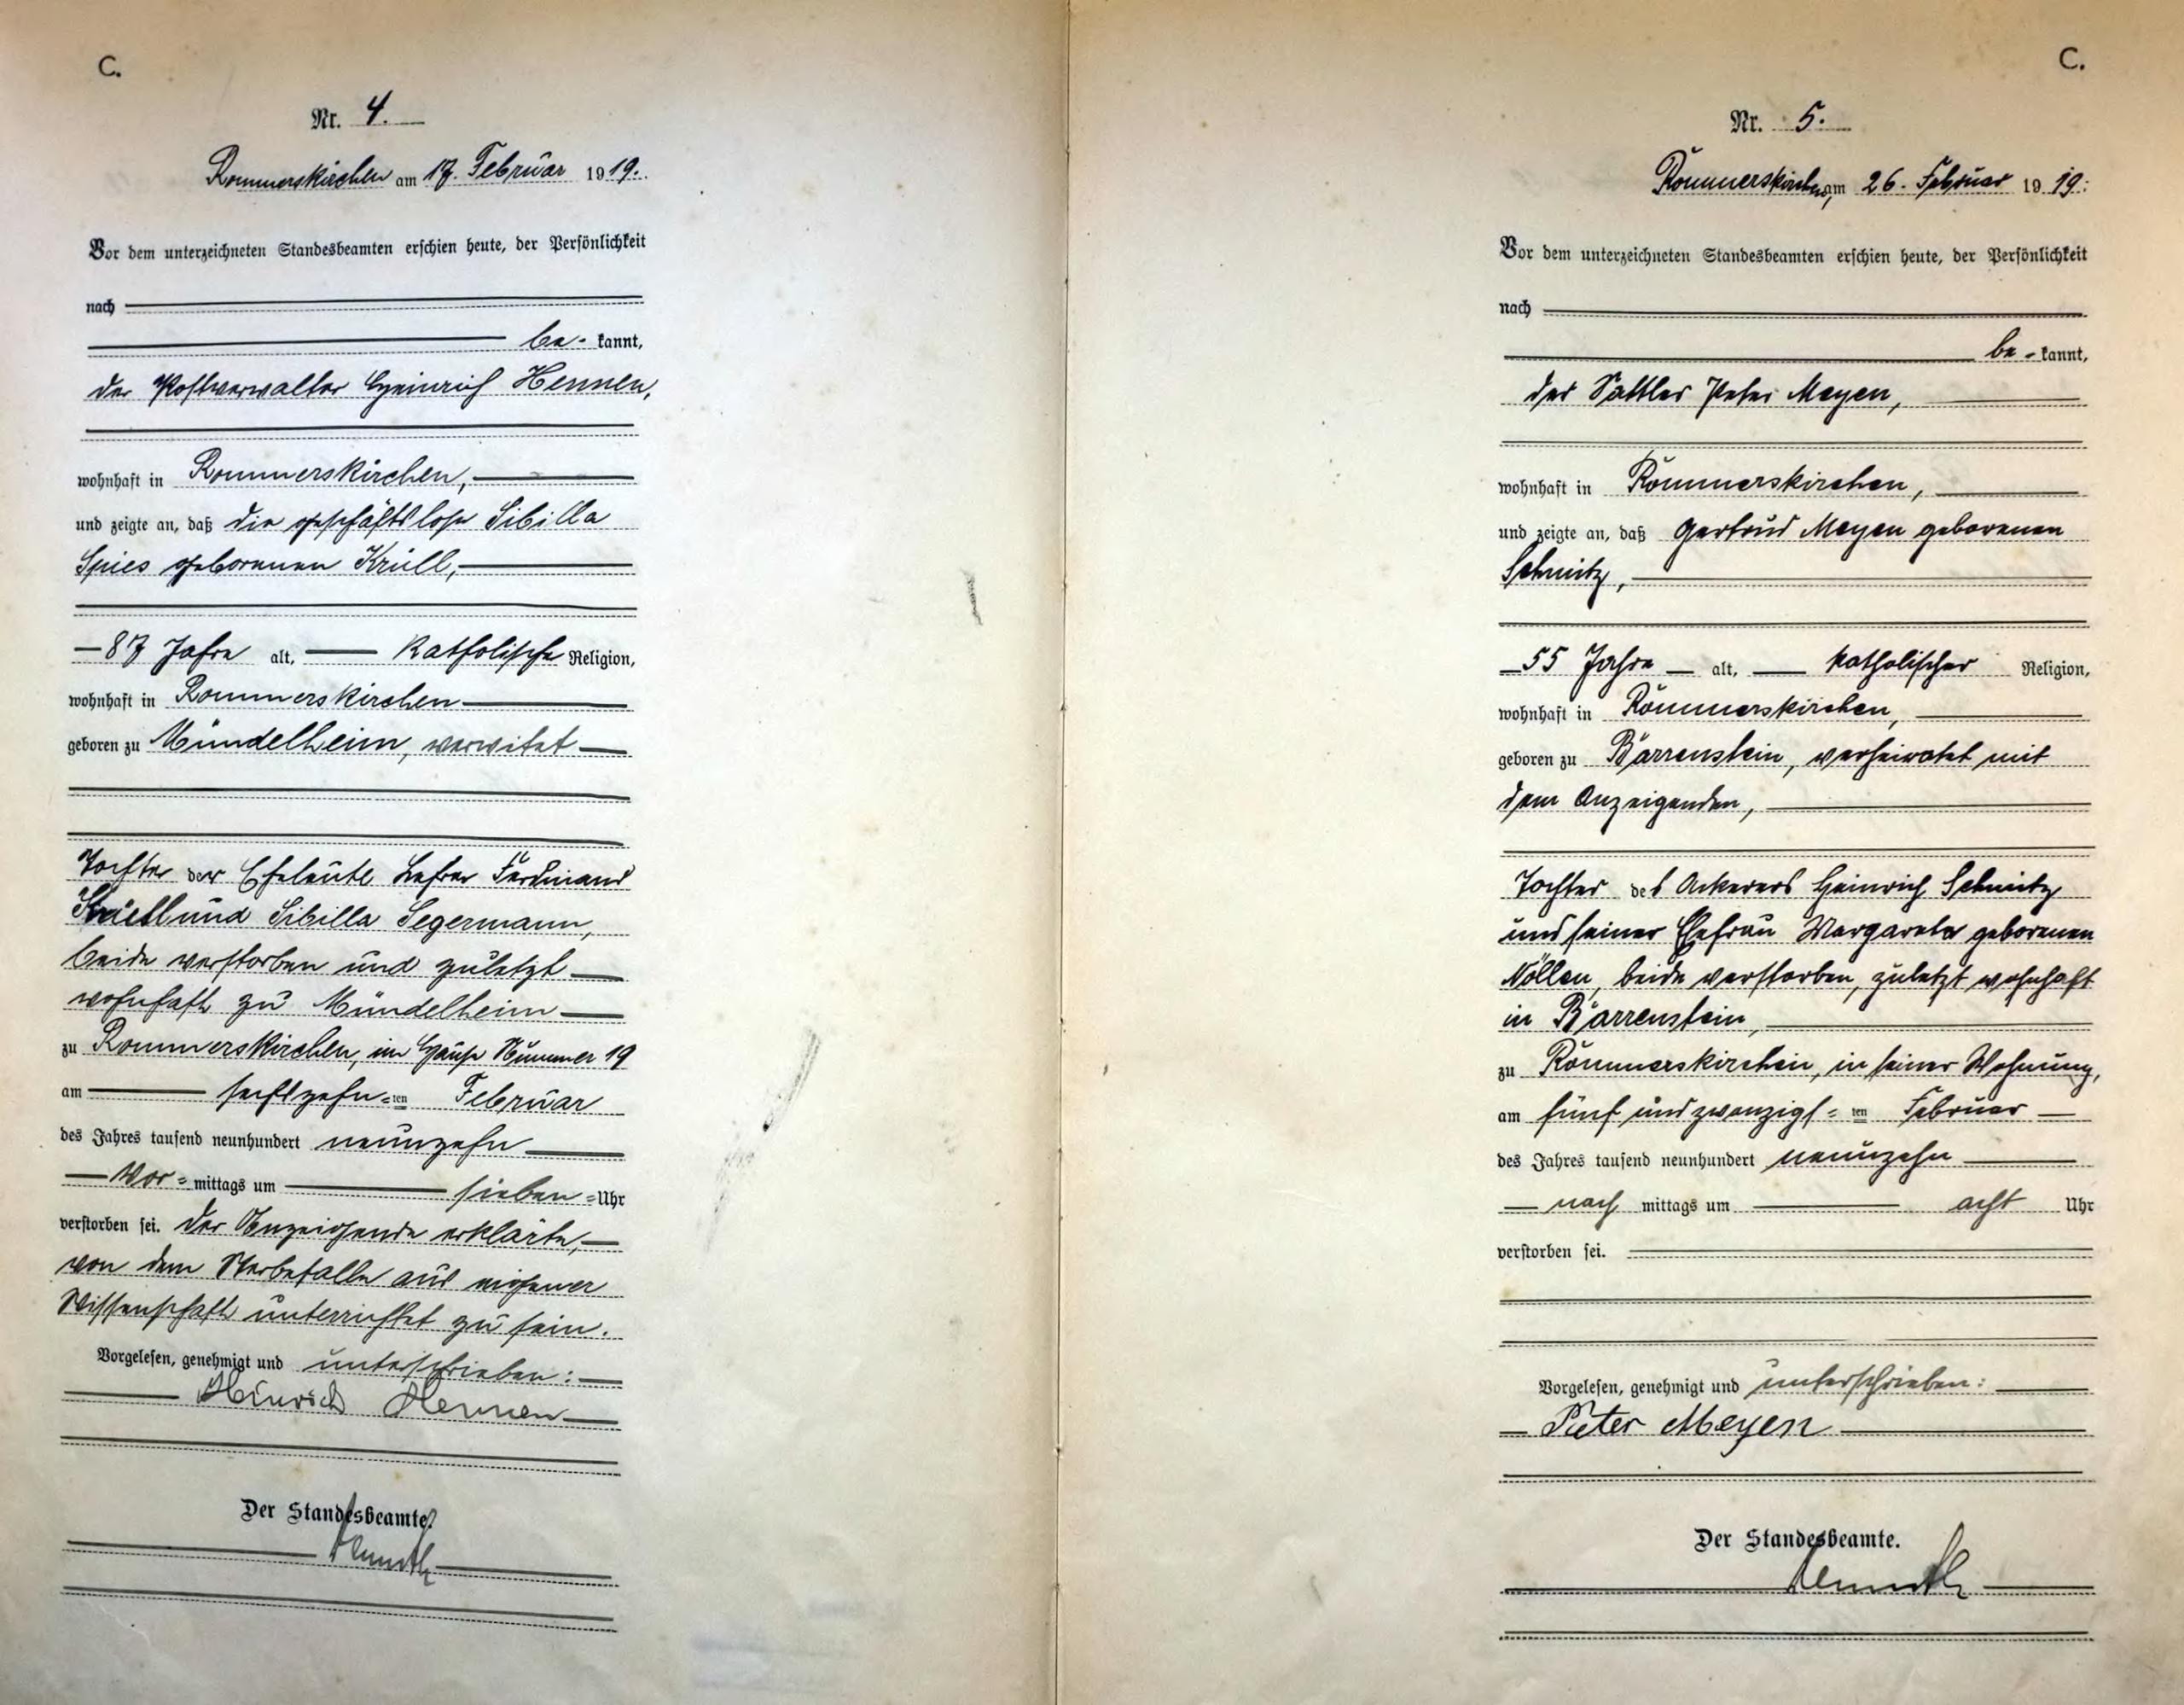 C.
Nr. 4.
Rommerskirchen am 17. Februar 1919.
Vor dem unterzeichneten Standesbeamten erschien heute, der Persönlichkeit
nach
be- kannt,
der Postverwalter Heinrich Hennen,
wohnhaft in Rommerskirchen,
und zeigte an, daß die geschäftslose Sibilla
Spies geborenen Krüll,
87 Jahre alt, katholische Religion,
wohnhaft in Rommerskirchen
geboren zu Mündelheim, verwitet
Tochter der Eheleute Lehrer Ferdinand
Krüll und Sibilla Segermann,
beide verstorben und zuletzt
wohnhaft zu Mündelheim
zu Rommerskirchen, im Hause Nummer 19
am sechszehn-ten Februar
des Jahres tausend neunhundert neunzehn
Vor= mittags um sieben = Uhr
verstorben sei. Der Anzeigende erklärte,
von dem Sterbefalle aus eigener
Wissenschaft unterrichtet zu sein.
Vorgelesen, genehmigt und unterschrieben:
Heinrich Hennen
Der Standesbeamte.
C.
Nr. 5.
Rommerskirchen, am 26. Februar 1919.
Vor dem unterzeichneten Standesbeamten erschien heute, der Persönlichkeit
nach
be- kannt,
der Sattler Peter Meyen,
wohnhaft in Rommerskirchen,
und zeigte an, daß Gertrud Meyen geborenen
Schmitz,
55 Jahre alt, katholischer Religion,
wohnhaft in Rommerskirchen,
geboren zu Barrenstein, verheiratet mit
dem Anzeigenden,
Tochter des Ackerers Heinrich Schmitz
und seiner Ehefrau Margareta geborenen
Nöllen, beide verstorben, zuletzt wohnhaft
in Barrenstein,
zu Rommerskirchen, in seiner Wohnung,
am fünf und zwanzigs=ten Februar
des Jahres tausend neunhundert neunzehn
nach mittags um acht Uhr
verstorben sei.
Vorgelesen, genehmigt und unterschrieben:
Peter Meyen
Der Standesbeamte.